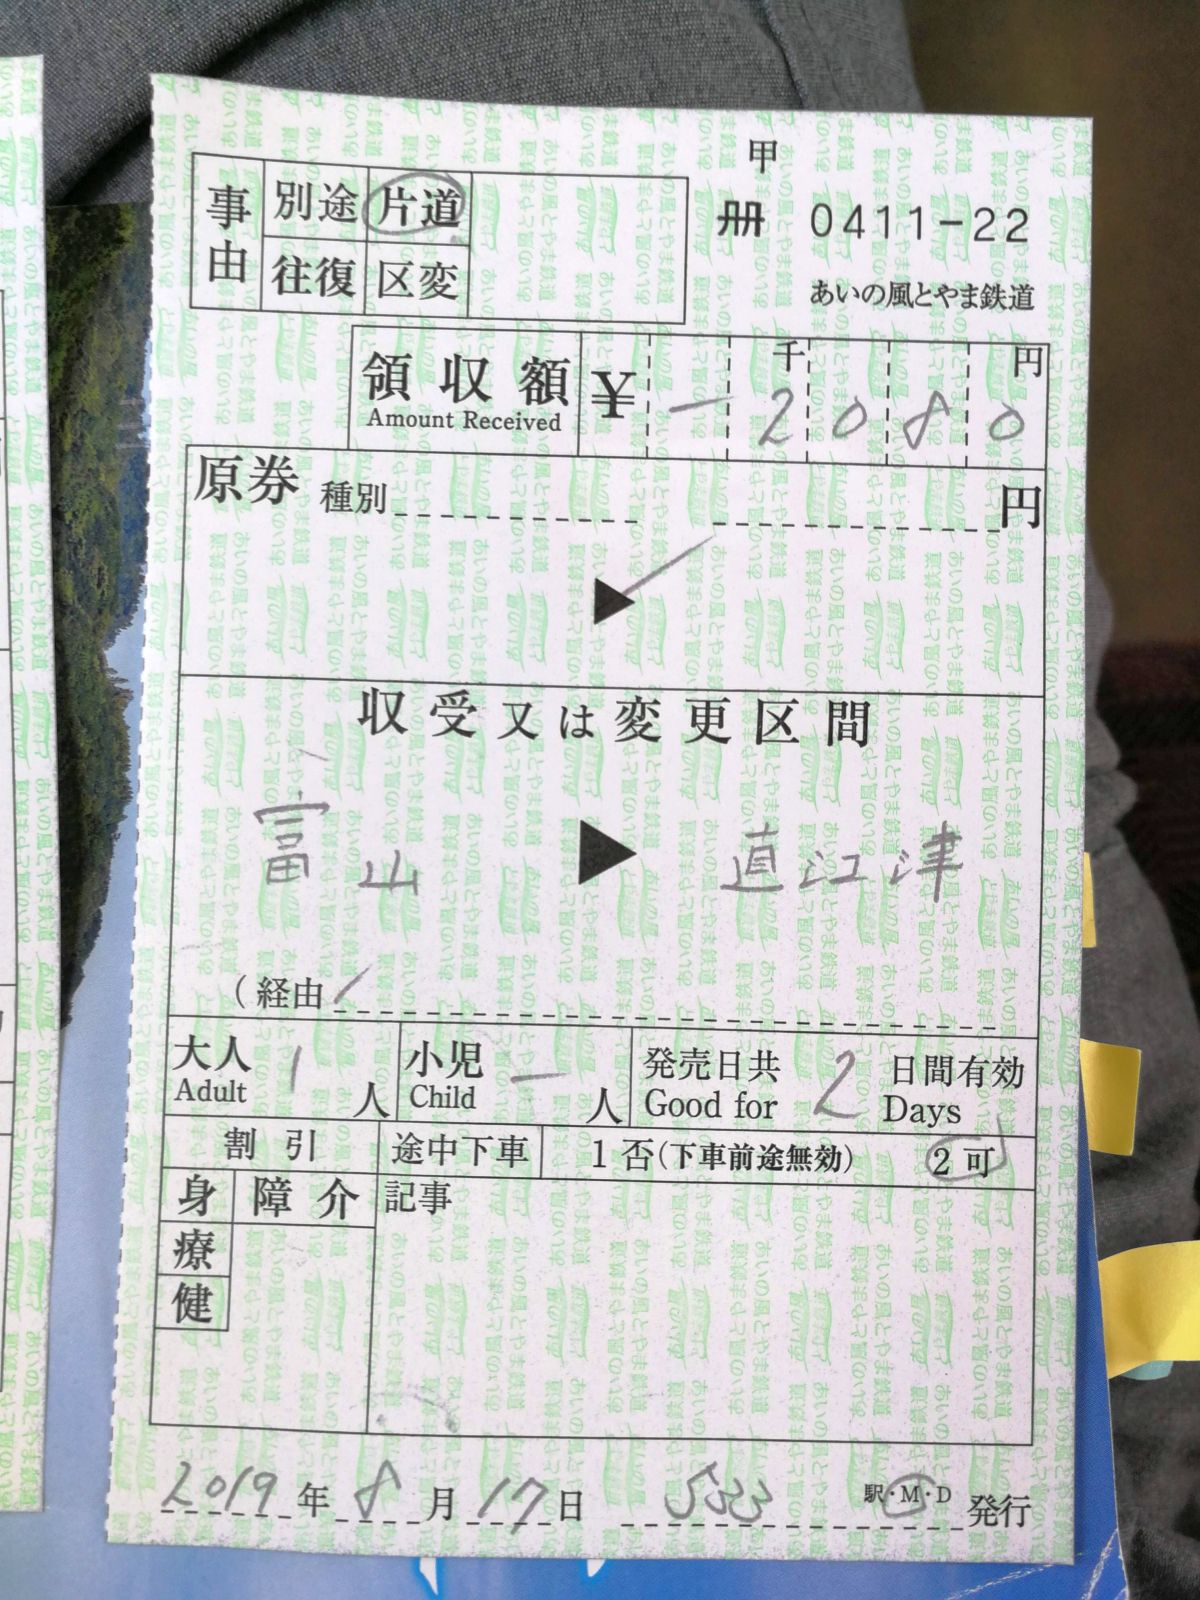 甲
冊 0411-22
あいの風とやま鉄道
事由 別途 片道
往復 区変
領収額 ¥ 千 円
Amount Received - 2080
原券 種別 円
▶
収受又は変更区間
富山 ▶ 直江津
(経由
大人 1 人 小児 - 人 発売日共 2 日間有効
Adult Child Good for Days
割引 途中下車 1 否(下車前途無効) 2 可
身 障 介 記事
療
健
2019年8月17日 533 駅・M・D 発行